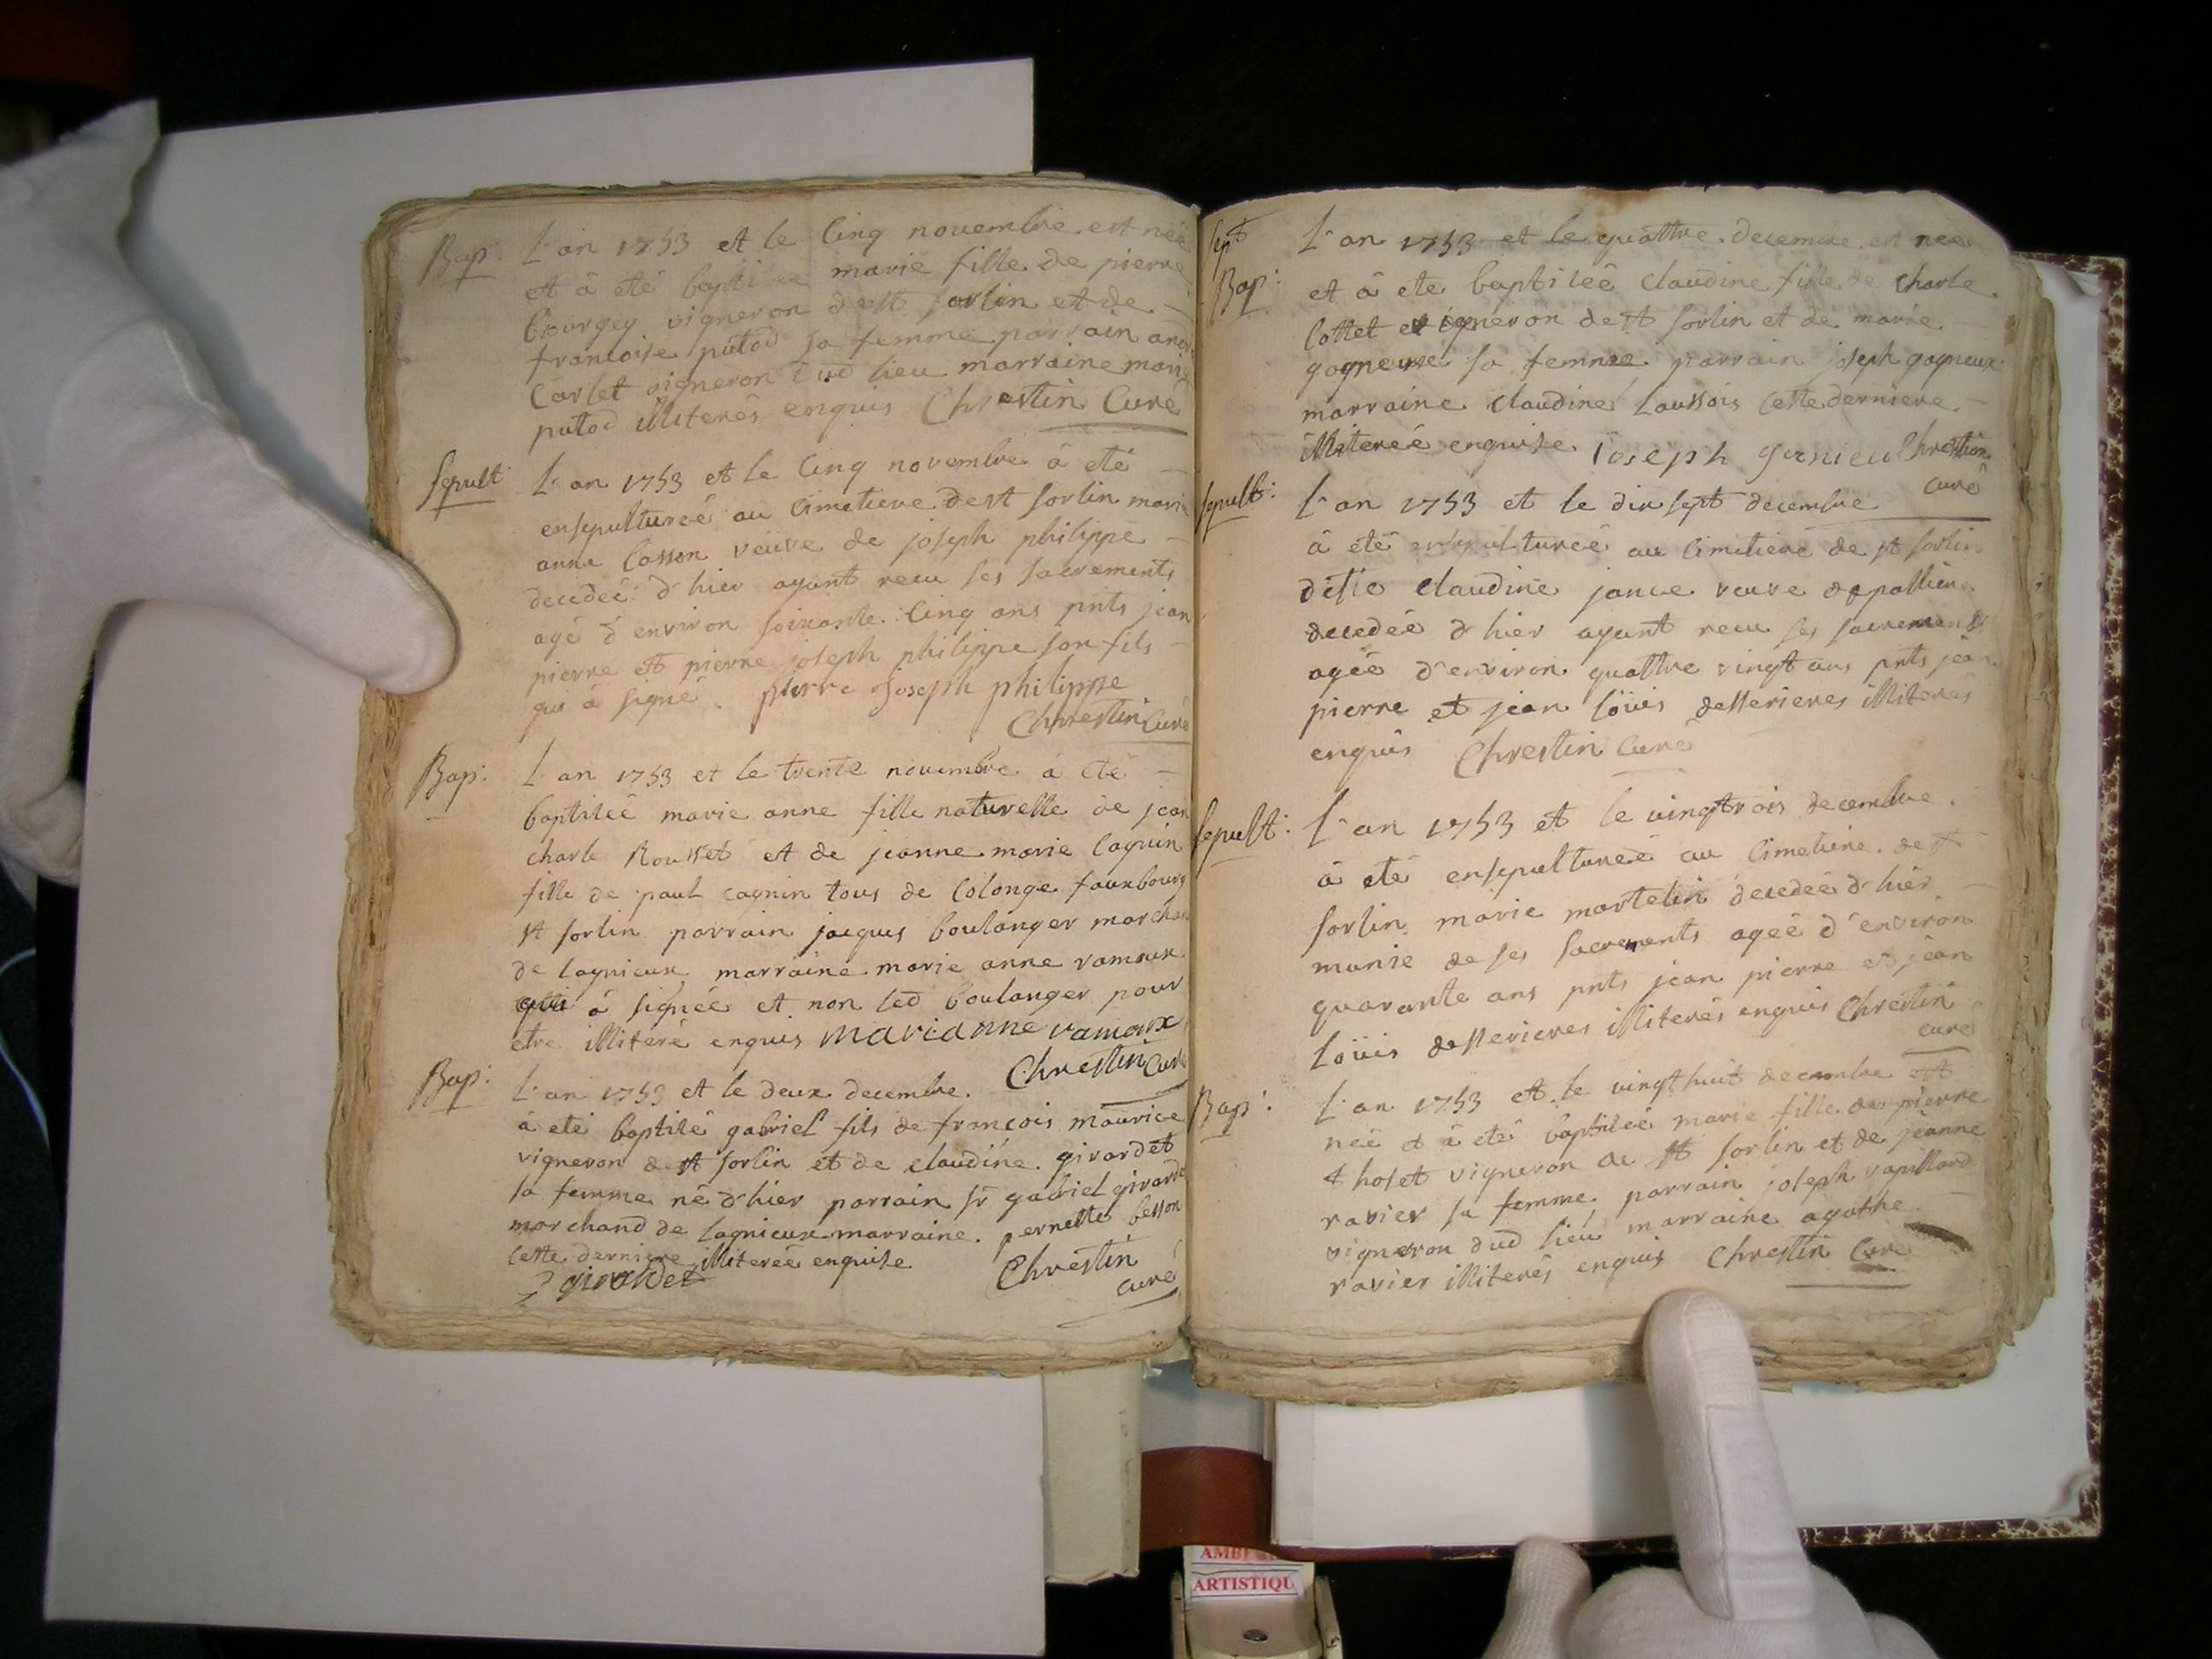 Bap: L'an 1753 et le cinq novembre est née
et à eté baptisée marie fille de pierre
bourgey vigneron de st sorlin et de
francoise putod sa femme parrain and
Carlet vigneron dud lieu marraine marie
putod illiterés enquis Chrestin Curé
Sepult L'an 1753 et le cinq novembre à eté
ensepultureé au cimetiere de st sorlin marie
anne Cosson veuve de joseph philippe
decedeé d'hier ayant receu ses sacrements
agé d'environ soixante cinq ans pnts jean
pierre et pierre joseph philippe son fils
qui à signé. pierre joseph philippe
Chrestin Curé
Bap: L'an 1753 et le trente novembre à eté
baptiseé marie anne fille naturelle de jean
charle Rousset et de jeanne marie cagnin
fille de paul cagnin tous de Colonge fauxbourg
st sorlin parrain jacques boulanger marchan
de lagnieux marraine marie anne ramaux
qui à signée et non led boulanger pour
etre illiteré enquis marianne ramaux
Chrestin Curé
Bap: L'an 1753 et le deux decembre.
à eté baptisé gabriel fils de francois maurice
vigneron de st sorlin et de claudine girardet
sa femme né d'hier parrain sr gabriel girardet
marchand de lagnieux marraine pernette besson
cette derniere illitereé enquise Chrestin
girardet curé
Sept
L'an 1753 et le quattre decembre est née
Bap: et à eté baptiseé claudine fille de charle
Cottet vigneron de st sorlin et de marie
gogneux sa femme parrain joseph gogneux
marraine claudine Laussois cette derniere
illitereé enquise Joseph Chrestin
curé
Sepult: L'an 1753 et le dix sept decembre
à eté ensepultureé au cimetiere de st sorlin
delle claudine janue veuve
decedeé d'hier ayant receu ses sacrements
ageé d'environ quattre vingt ans pnts jean
pierre et jean loüis desserieres illiterés
enquis Chrestin Curé
Sepult: L'an 1753 et le vingtrois decembre.
à eté ensepultureé au cimetiere de st
sorlin marie martelin decedeé d'hier
munie de ses sacrements ageé d'environ
quarante ans pnts jean pierre et jean
Loüis desserieres illiterés enquis Chrestin
curé
Bap: L'an 1753 et le vingt huit decembre est
née et à eté baptiseé marie fille de pierre
thoset vigneron de st sorlin et de jeanne
ravier sa femme parrain joseph rapillard
vigneron dud lieu marraine agathe
ravier illiterés enquis Chrestin Curé
ARTISTIQU